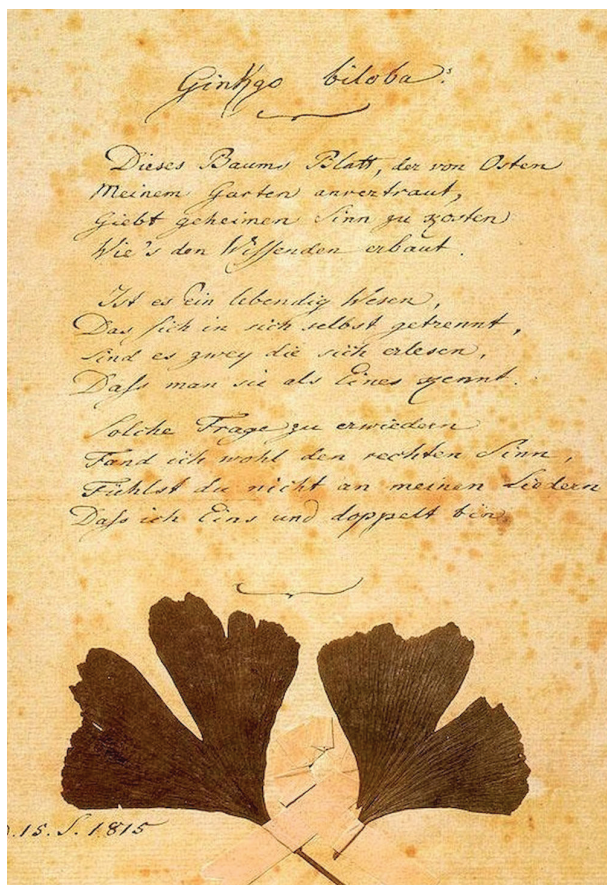 Ginkgo biloba.
Dieses Baums Blatt, der von Osten
Meinem Garten anvertraut,
Giebt geheimen Sinn zu kosten
Wie's den Wissenden erbaut.
Ist es Ein lebendig Wesen,
Das sich in sich selbst getrennt,
Sind es zwey die sich erlesen,
Dass man sie als Eines kennt.
Solche Frage zu erwiedern
Fand ich wohl den rechten Sinn,
Fühlst du nicht an meinen Liedern
Dass ich Eins und doppelt bin
15. S. 1815